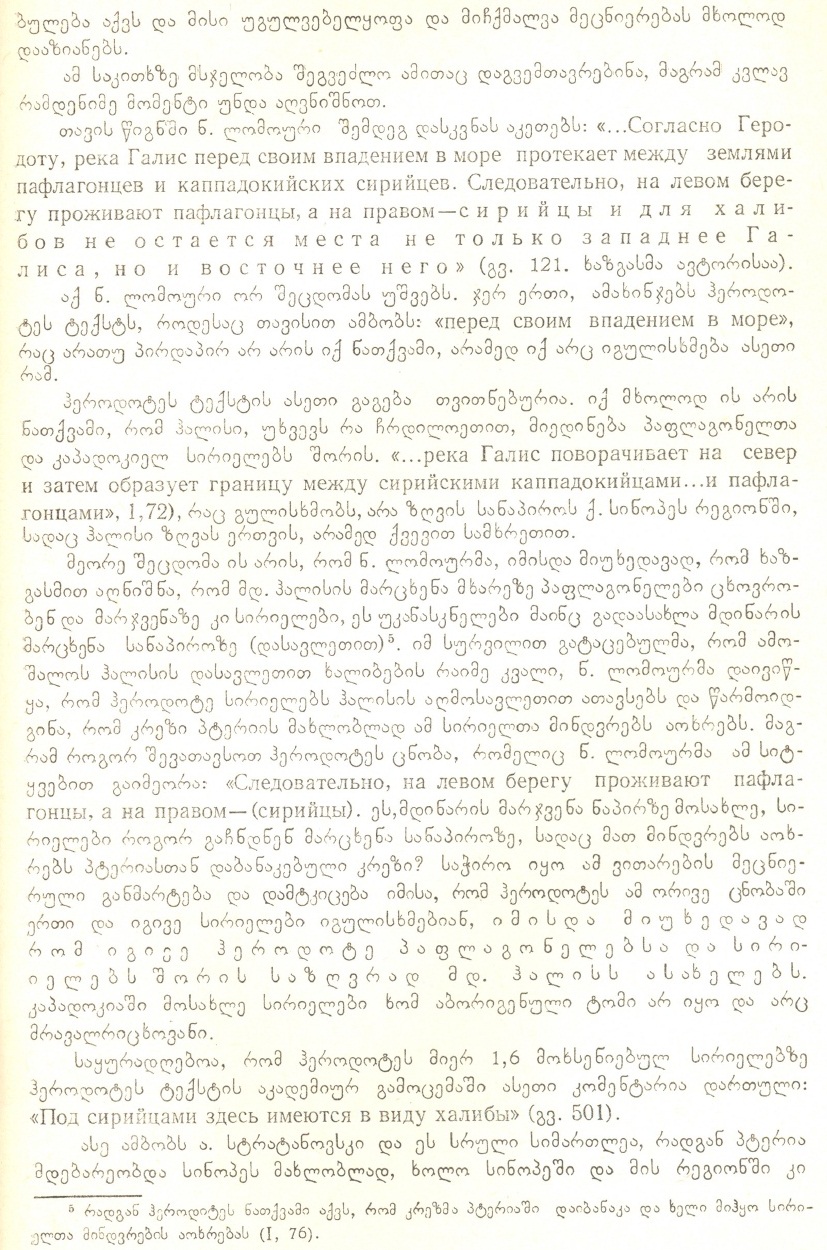 ბულება აქვს და მისი უგულვებელყოფა და მიჩქმალვა მეცნიერებას მხოლოდ
დააზიანებს.
ამ საკითხზე მსჯელობა შეგვეძლო ამითაც დაგვემთავრებინა, მაგრამ კვლავ
რამდენიმე მომენტი უნდა აღვნიშნოთ.
თავის წიგნში ნ. ლომოური შემდეგ დასკვნას აკეთებს: «...Согласно Геро-
доту, река Галис перед своим впадением в море протекает между землями
пафлагонцев и каппадокийских сирийцев. Следовательно, на левом бере-
гу проживают пафлагонцы, а на правом—сирийцы и для хали-
бов не остается места не только западнее Га-
лиса, но и восточнее него» (გვ. 121. ხაზგასმა ავტორისაა).
აქ ნ. ლომოური ორ შეცდომას უშვებს. ჯერ ერთი, ამახინჯებს ჰეროდო-
ტეს ტექსტს, როდესაც თავისით ამბობს: «перед своим впадением в море»,
რაც არათუ პირდაპირ არ არის იქ ნათქვამი, არამედ იქ არც იგულისხმება ასეთი
რამ.
ჰეროდოტეს ტექსტის ასეთი გაგება თვითნებურია. იქ მხოლოდ ის არის
ნათქვამი, რომ ჰალისი, უხვევს რა ჩრდილოეთით, მიედინება პაფლაგონელთა
და კაპადოკიელ სირიელებს შორის. «...река Галис поворачивает на север
и затем образует границу между сирийскими каппадокийцами...и пафла-
гонцами», 1,72), რაც გულისხმობს, არა ზღვის სანაპიროს ქ. სინოპეს რეგიონში,
სადაც ჰალისი ზღვას ერთვის, არამედ ქვევით სამხრეთით.
მეორე შეცდომა ის არის, რომ ნ. ლომოურმა, იმისდა მიუხედავად, რომ ხაზ-
გასმით აღნიშნა, რომ მდ. ჰალისის მარცხენა მხარეზე პაფლაგონელები ცხოვრო-
ბენ და მარჯვენაზე კი სირიელები, ეს უკანასკნელები მაინც გადაასახლა მდინარის
მარცხენა სანაპიროზე (დასავლეთით)⁵. იმ სურვილით გატაცებულმა, რომ ამო-
შალოს ჰალისის დასავლეთით ხალიბების რაიმე კვალი, ნ. ლომოურმა დაივიწ-
ყა, რომ ჰეროდოტე სირიელებს ჰალისის აღმოსავლეთით ათავსებს და წარმოიდ-
გინა, რომ კრეზი პტერიის მახლობლად ამ სირიელთა მინდვრებს აოხრებს. მაგ-
რამ როგორ შევათავსოთ ჰეროდოტეს ცნობა, რომელიც ნ. ლომოურმა ამ სიტ-
ყვებით გაიმეორა: «Следовательно, на левом берегу проживают пафла-
гонцы, а на правом—(сирийцы). ეს,მდინარის მარჯვენა ნაპირზე მოსახლე, სი-
რიელები როგორ გაჩნდნენ მარცხენა სანაპიროზე, სადაც მათ მინდვრებს აოხ-
რებს პტერიასთან დაბანაკებული კრეზი? საჭირო იყო ამ ვითარების მეცნიე-
რული განმარტება და დამტკიცება იმისა, რომ ჰეროდოტეს ამ ორივე ცნობაში
ერთი და იგივე სირიელები იგულისხმებიან, იმისდა მიუხედავად
რომ იგივე ჰეროდოტე პაფლაგონელებსა და სირი-
იელებს შორის საზღვრად მდ. ჰალისს ასახელებს.
კაპადოკიაში მოსახლე სირიელები ხომ აბორიგენული ტომი არ იყო და არც
მრავალრიცხოვანი.
საყურადღებოა, რომ ჰეროდოტეს მიერ 1,6 მოხსენიებულ სირიელებზე
ჰეროდოტეს ტექსტის აკადემიურ გამოცემაში ასეთი კომენტარია დართული:
«Под сирийцами здесь имеются в виду халибы» (გვ. 501).
ასე ამბობს ა. სტრატანოვსკი და ეს სრული სიმართლეა, რადგან პტერია
მდებარეობდა სინოპეს მახლობლად, ხოლო სინოპეში და მის რეგიონში კი
⁵ რადგან ჰეროდიტეს ნათქვამი აქვს, რომ კრეზმა პტერიაში დაიბანაკა და ხელი მიჰყო სირი-
ელთა მინდვრების აოხრებას (I, 76).